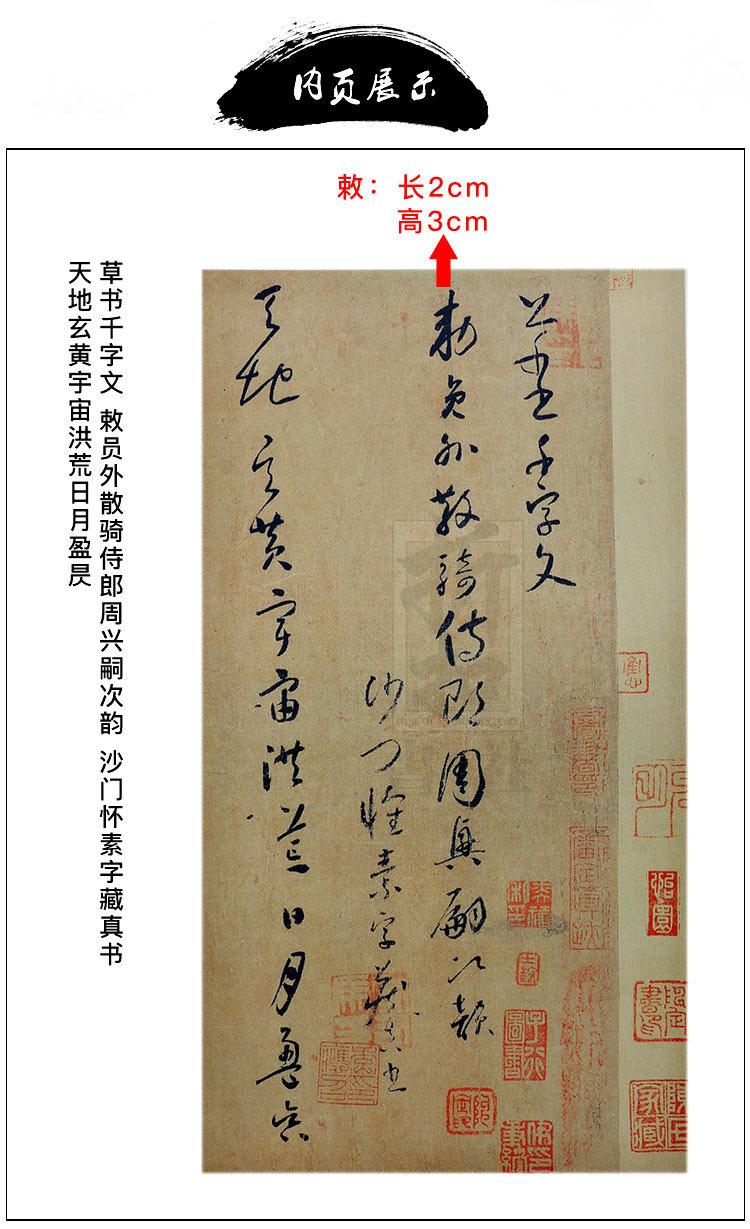 内页展示
敕：长2cm
高3cm
草书千字文 敕员外散骑侍郎周兴嗣次韵 沙门怀素字藏真书
天地玄黄宇宙洪荒日月盈昃
草书千字文
敕员外散骑侍郎周兴嗣次韵
沙门怀素字藏真书
天地玄黄宇宙洪荒日月盈昃